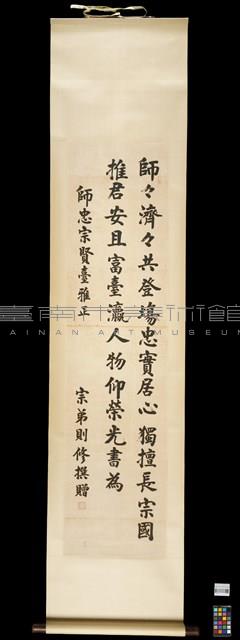 師々濟々共登場忠實居心獨擅長宗國
推君安且富臺瀛人物仰榮光書為
師忠宗賢臺雅正
宗弟則修撰贈
臺南市美術館
TAINAN ART MUSEUM